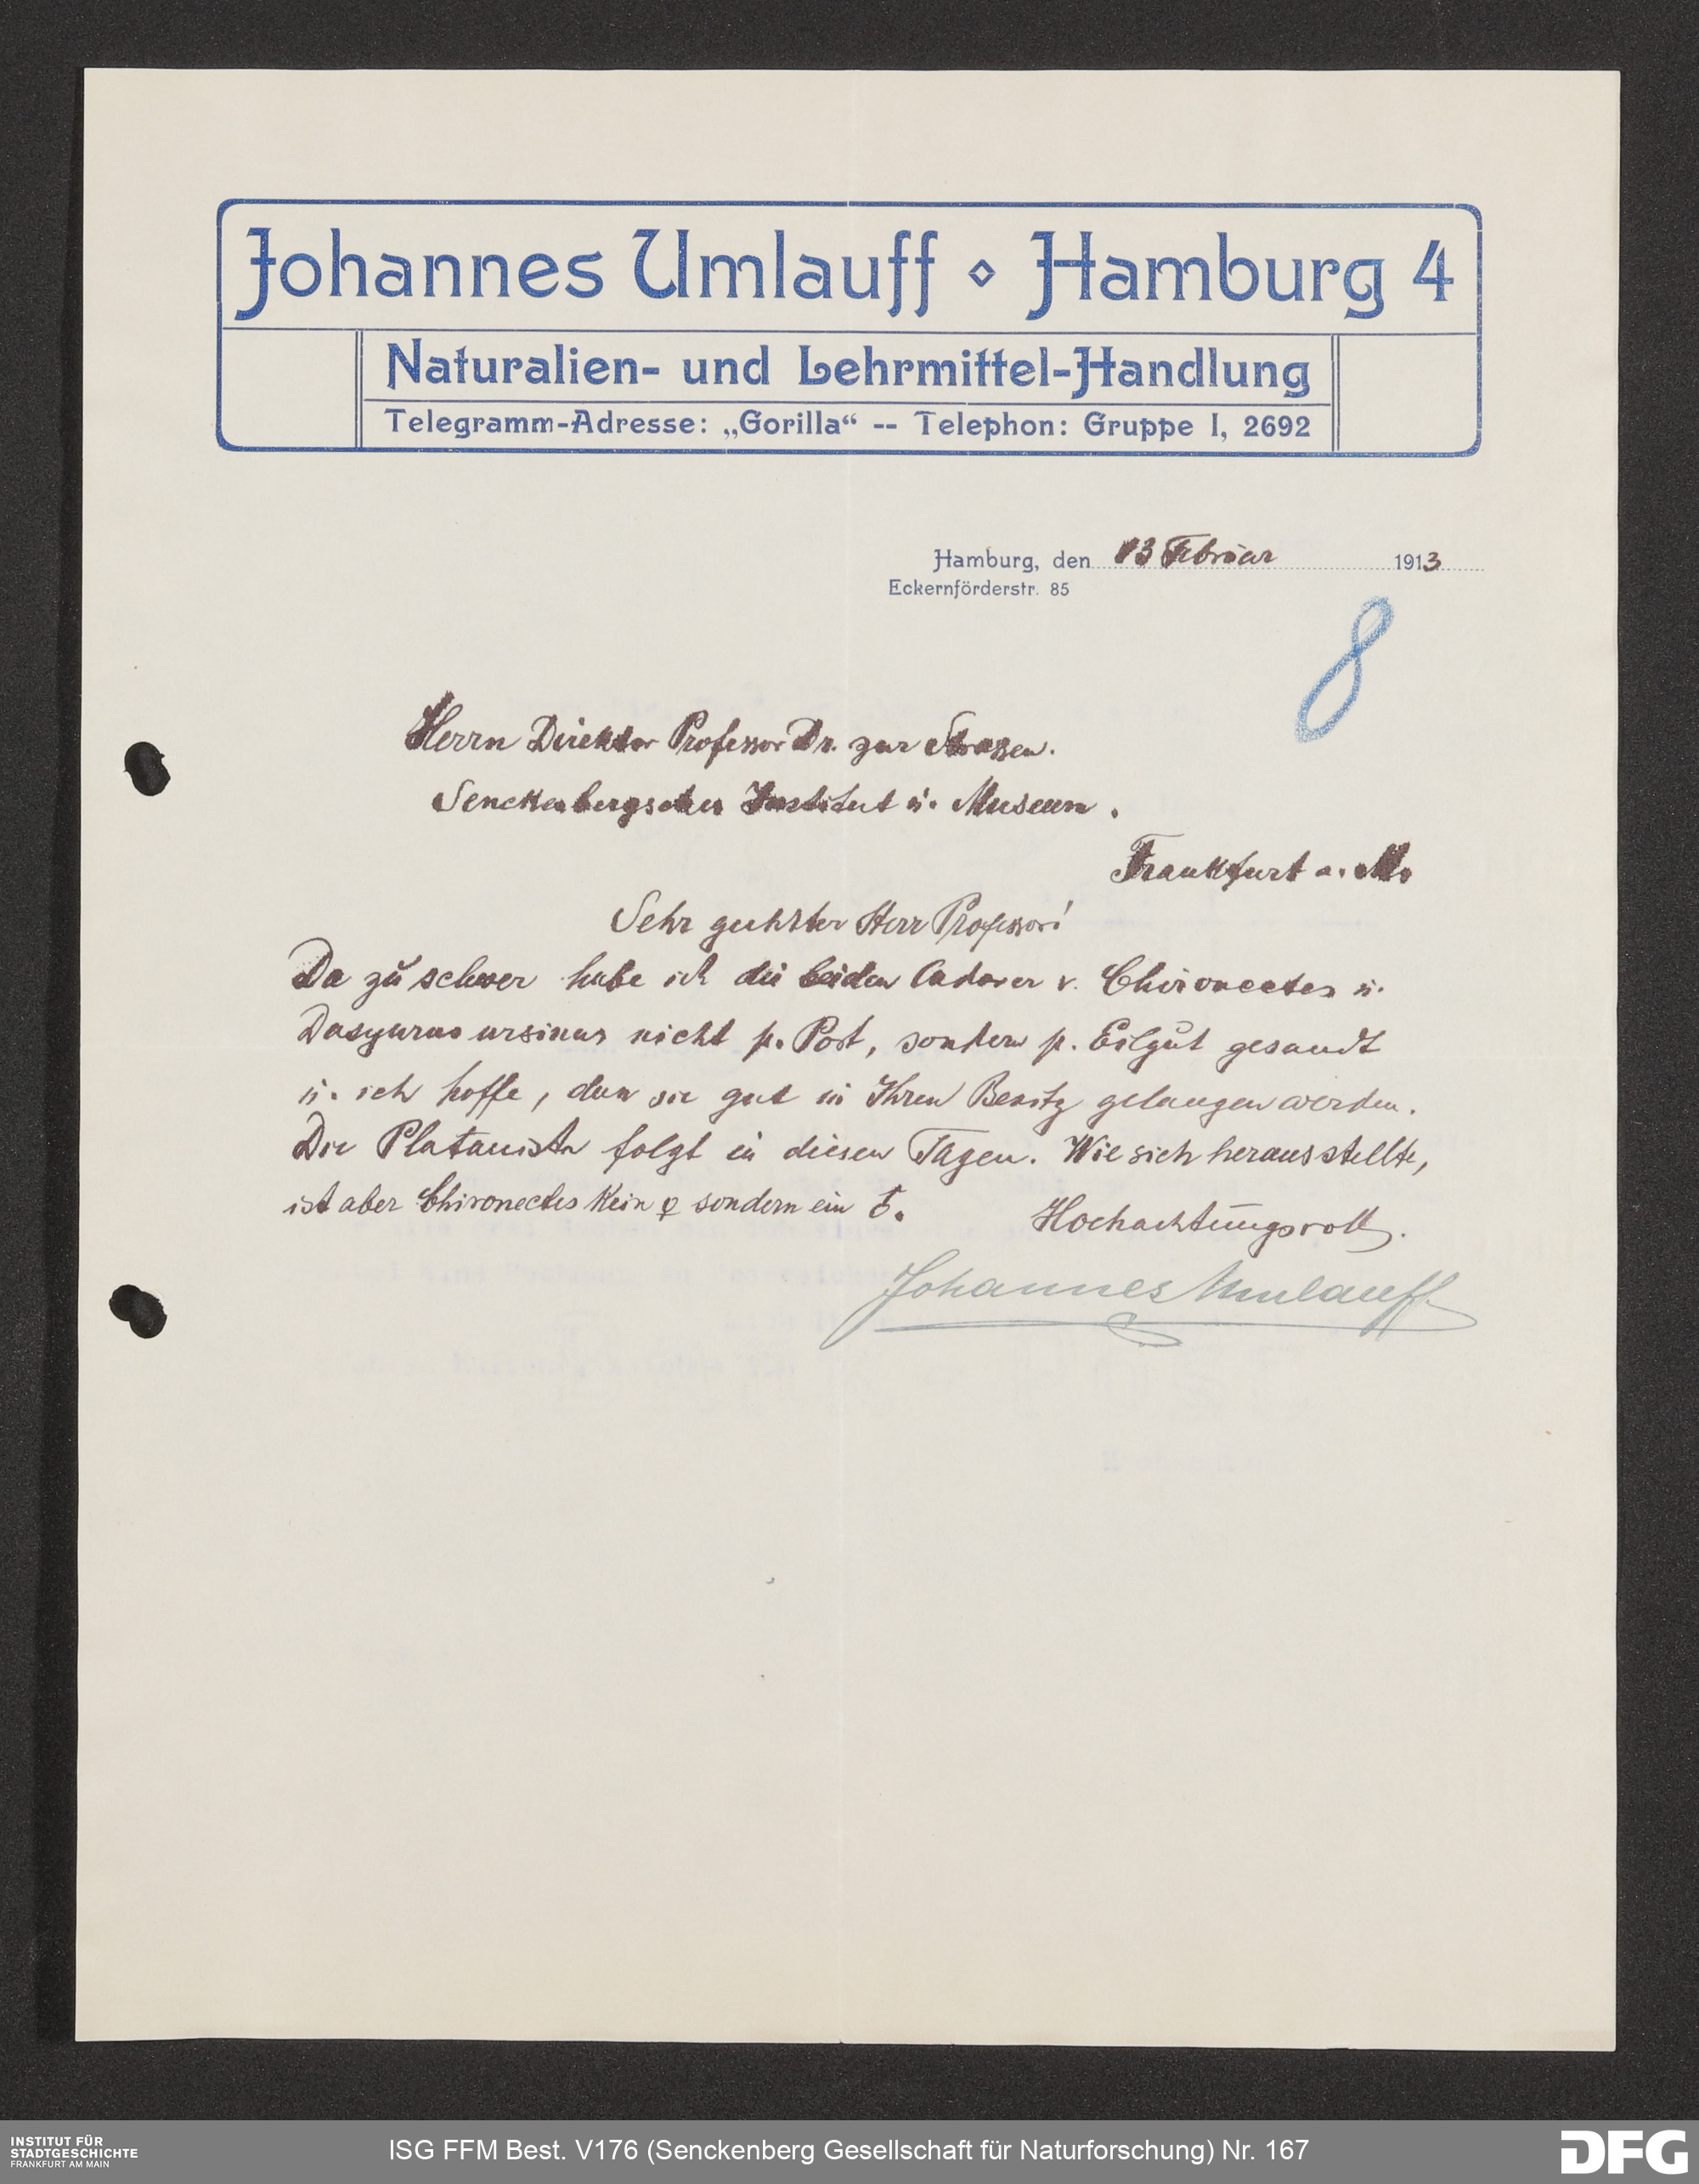 Johannes Umlauff ⋄ Hamburg 4
Naturalien- und Lehrmittel-Handlung
Telegramm-Adresse: „Gorilla“ -- Telephon: Gruppe I, 2692
Hamburg, den 13 Februar 1913
Eckernförderstr. 85
8
Herrn Direktor Professor Dr. zur Strassen.
Senckenbergsches Institut u. Museum.
Frankfurt a. M.
Sehr geehrter Herr Professor!
Da zu schwer habe ich die beiden Cadaver v. Chironectes u.
Dasyurus ursinus nicht p. Post, sondern p. Eilgut gesandt
u. ich hoffe, dass sie gut in Ihren Besitz gelangen werden.
Die Platanista folgt in diesen Tagen. Wie sich herausstellte,
ist aber Chironectes kein ♀ sondern ein ♂.
Hochachtungsvoll.
Johannes Umlauff
INSTITUT FÜR
STADTGESCHICHTE
FRANKFURT AM MAIN
ISG FFM Best. V176 (Senckenberg Gesellschaft für Naturforschung) Nr. 167
DFG